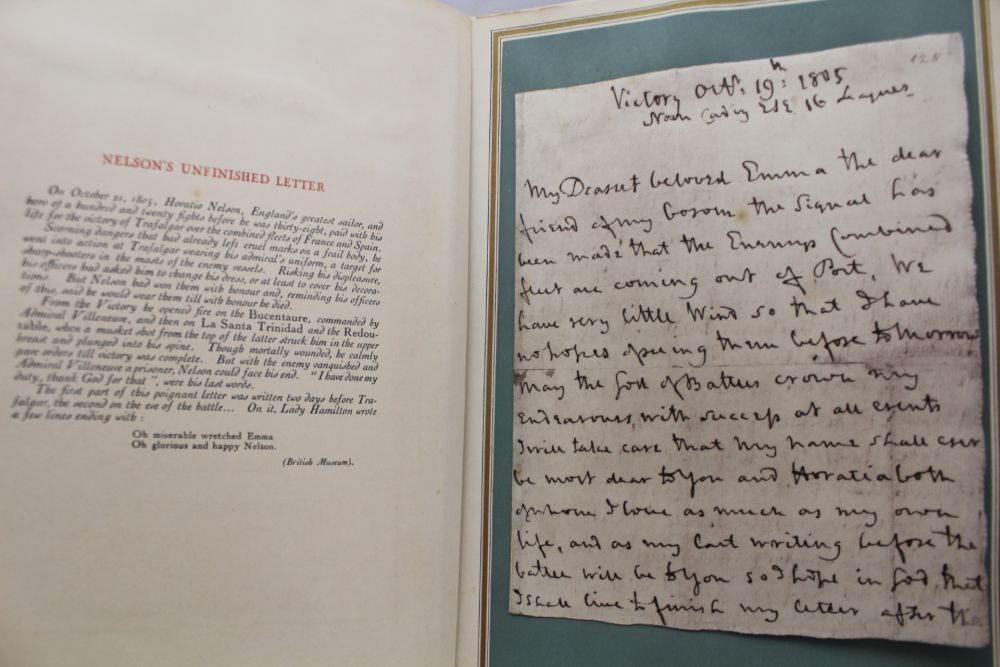 NELSON'S UNFINISHED LETTER
On October 21, 1805, Horatio Nelson, England's greatest sailor, and
hero of a hundred and twenty fights before he was thirty-eight, paid with his
life for the victory of Trafalgar over the combined fleets of France and Spain.
Scorning dangers that had already left cruel marks on a frail body, he
went into action at Trafalgar wearing his admiral's uniform, a target for
sharp-shooters in the masts of the enemy vessels. Risking his displeasure,
his officers had asked him to change his dress, or at least to cover his decora-
tions. But Nelson had won them with honour and, reminding his officers
of this, said he would wear them till with honour he died.
From the Victory he opened fire on the Bucentaure, commanded by
Admiral Villeneuve, and then on La Santa Trinidad and the Redou-
table, when a musket shot from the top of the latter struck him in the upper
breast and plunged into his spine. Though mortally wounded, he calmly
gave orders till victory was complete. But with the enemy vanquished and
Admiral Villeneuve a prisoner, Nelson could face his end. "I have done my
duty, thank God for that", were his last words.
The first part of this poignant letter was written two days before Tra-
falgar, the second on the eve of the battle... On it, Lady Hamilton wrote
a few lines ending with :
Oh miserable wretched Emma
Oh glorious and happy Nelson.
(British Museum).
125
Victory Octr: 19th: 1805
Noon Cadiz ESE 16 Leagues
My Dearest beloved Emma the dear
friend of my bosom the Signal has
been made that the Enemys Combined
fleet are coming out of Port, We
have very little Wind so that I have
no hopes of seeing them before tomorrow
May the God of Battles crown my
Endeavours with success at all events
I will take care that my name shall ever
be most dear to You and Horatia both
of whom I love as much as my own
life, and as my last writing before the
battle will be to You so I hope in God that
I shall live to finish my letter after the